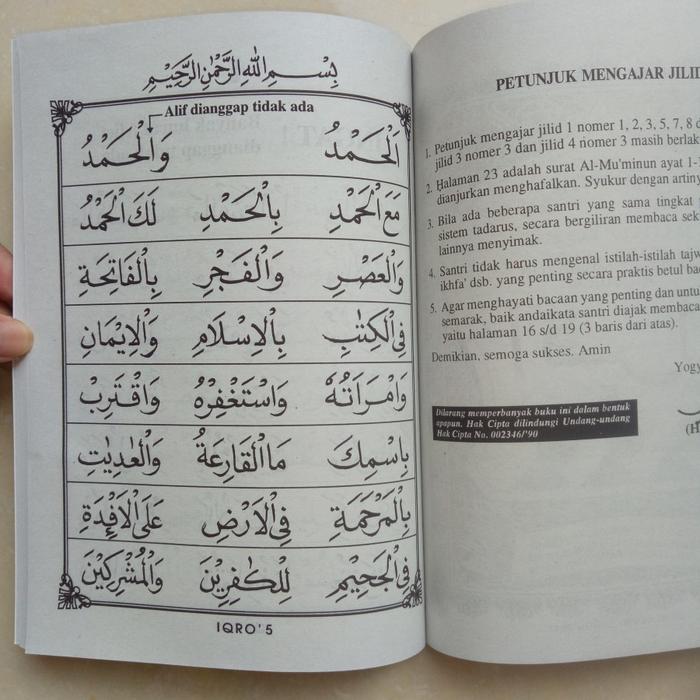 بِسْمِ اللهِ الرَّحْمٰنِ الرَّحِيْمِ
Alif dianggap tidak ada
اَلْحَمْدُ وَالْحَمْدُ
مَعَ الْحَمْدِ بِالْحَمْدِ لَكَ الْحَمْدُ
وَالْعَصْرِ وَالْفَجْرِ بِالْفَاتِحَةِ
فِى الْكِتٰبِ بِالْاِسْلَامِ وَالْاِيْمَانِ
وَامْرَاَتُهُ وَاسْتَغْفِرْهُ وَاقْتَرِبْ
بِاسْمِكَ مَا الْقَارِعَةُ وَالْعٰدِيٰتِ
بِالْمَرْحَمَةِ فِى الْاَرْضِ عَلَى الْاَفْئِدَةِ
فِى الْجَحِيْمِ لِلْكٰفِرِيْنَ وَالْمُشْرِكِيْنَ
IQRO' 5
PETUNJUK MENGAJAR JILID
1. Petunjuk mengajar jilid 1 nomer 1, 2, 3, 5, 7, 8 d
jilid 3 nomer 3 dan jilid 4 nomer 3 masih berlak
2. Halaman 23 adalah surat Al-Mu'minun ayat 1-
dianjurkan menghafalkan. Syukur dengan artiny
3. Bila ada beberapa santri yang sama tingkat
sistem tadarus, secara bergiliran membaca sek
lainnya menyimak.
4. Santri tidak harus mengenal istilah-istilah tajw
ikhfa' dsb. yang penting secara praktis betul ba
5. Agar menghayati bacaan yang penting dan untu
semarak, baik andaikata santri diajak membaca
yaitu halaman 16 s/d 19 (3 baris dari atas).
Demikian, semoga sukses. Amin
Yogy
Dilarang memperbanyak buku ini dalam bentuk
apapun. Hak Cipta dilindungi Undang-undang
Hak Cipta No. 002346/'90
(H